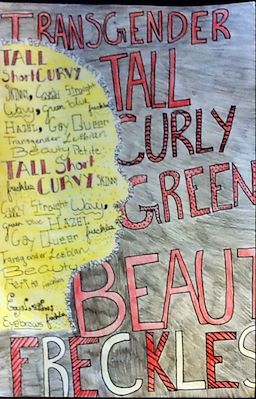 TRANSGENDER
TALL
Short CURVY
SKINNY, Curly Straight
Wavy, Green blue freckles
HAZEL, Gay Queer
Transgender Lesbian
Beauty Petite
TALL Short
freckles CURVY SKINNY
Curly Straight Wavy,
Green blue HAZEL
Gay Queer freckles
Transgender Lesbian
Beauty
Petite freckles
Eyebrows
TALL
CURLY
GREEN
BEAUT
FRECKLES